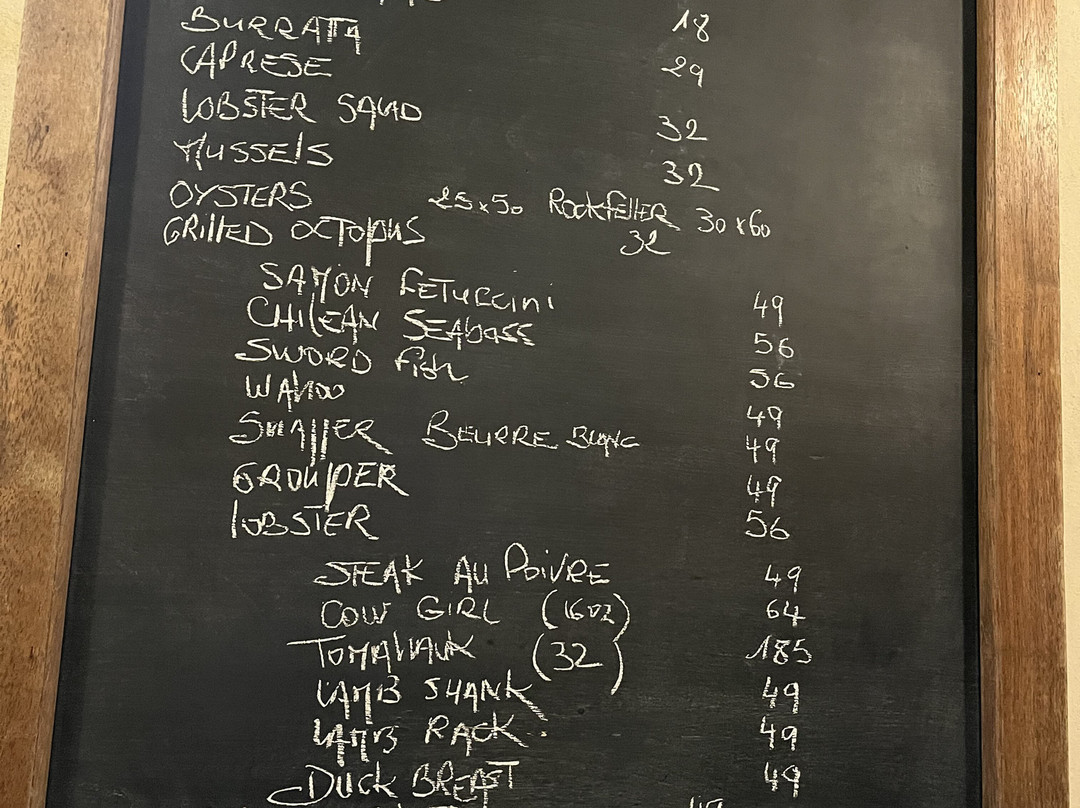 BURRATA 18
CAPRESE 29
LOBSTER SQUID 32
MUSSELS 32
OYSTERS 25x50 ROCKFELLER 30x60
GRILLED OCTOPUS 32
SAMON FETUCCINI 49
CHILEAN SEABASS 56
SWORD FISH 56
WAHOO 49
SNAPPER BEURRE BLANC 49
GROUPER 49
LOBSTER 56
STEAK AU POIVRE 49
COW GIRL (16oz) 64
TOMAHAUK (32) 185
LAMB SHANK 49
LAMB RACK 49
DUCK BREAST 49